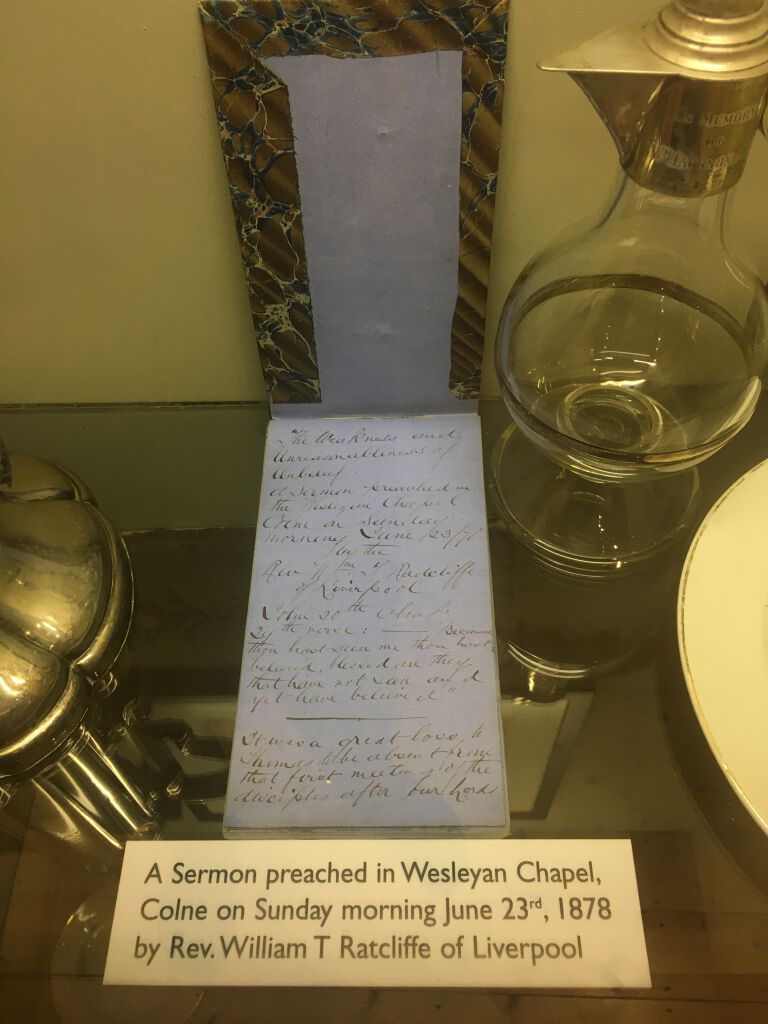 IN MEMORY
OF
JACKSON
The Weakness and
Unreasonableness of
Unbelief.
A Sermon preached in
the Wesleyan Chapel
Colne on Sunday
morning June 23/78
by the
Rev Wm Radcliffe
of Liverpool
John 20th Chap:
29th verse: — "Because
thou hast seen me thou hast
believed, blessed are they
that have not seen and
yet have believed"
It was a great loss, to
Thomas to be absent from
that first meeting of the
disciples after our Lords
A Sermon preached in Wesleyan Chapel,
Colne on Sunday morning June 23rd, 1878
by Rev. William T Ratcliffe of Liverpool